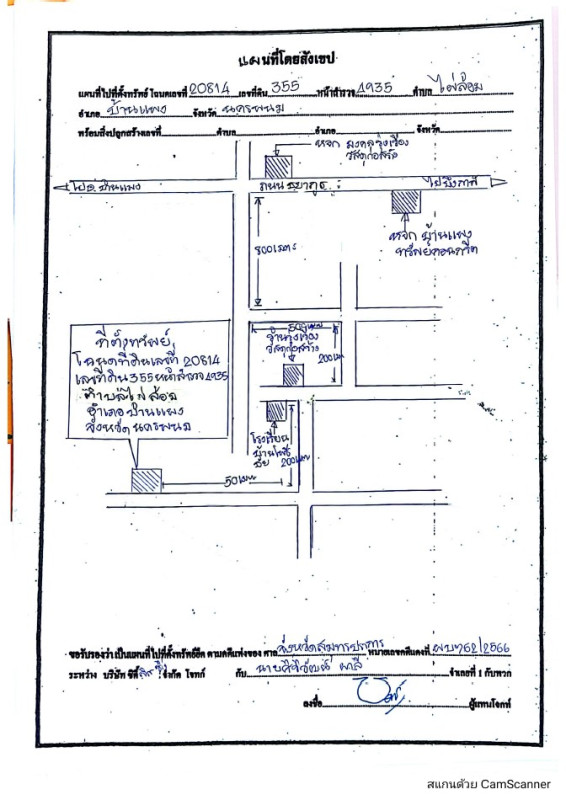 แผนที่โดยสังเขป
แผนที่ไปที่ตั้งทรัพย์ โฉนดเลขที่ 20814 เลขที่ดิน 355 หน้าสำรวจ 4935 ตำบล ไผ่ล้อม
อำเภอ บ้านแพง จังหวัด นครพนม
พร้อมสิ่งปลูกสร้างเลขที่ ตำบล อำเภอ จังหวัด
หจก มงคลรุ่งเรือง
วัสดุก่อสร้าง
ไป บ้านแพง
ถนน
ไปบึงกาฬ
หจก บ้านแพง
ทรัพย์คอนกรีต
800 เมตร
500 เมตร
วัสดุก่อสร้าง
200 เมตร
ที่ตั้งทรัพย์
โฉนดที่ดินเลขที่ 20814
เลขที่ดิน 355 หน้าสำรวจ 4935
ตำบลไผ่ล้อม
อำเภอบ้านแพง
จังหวัดนครพนม
โรงเรียน
บ้านโพธิ์
ชัย 200 เมตร
50 เมตร
ขอรับรองว่าเป็นแผนที่ไปที่ตั้งทรัพย์ยึด ตามคดีแพ่งของ ศาล จังหวัดสมุทรปราการ หมายเลขคดีแดงที่ ผบ 762/2566
ระหว่าง บริษัท ซิตี้ ลิสซิ่ง จำกัด โจทก์ กับ จำเลยที่ 1 กับพวก
ลงชื่อ ผู้แทนโจทก์
สแกนด้วย CamScanner